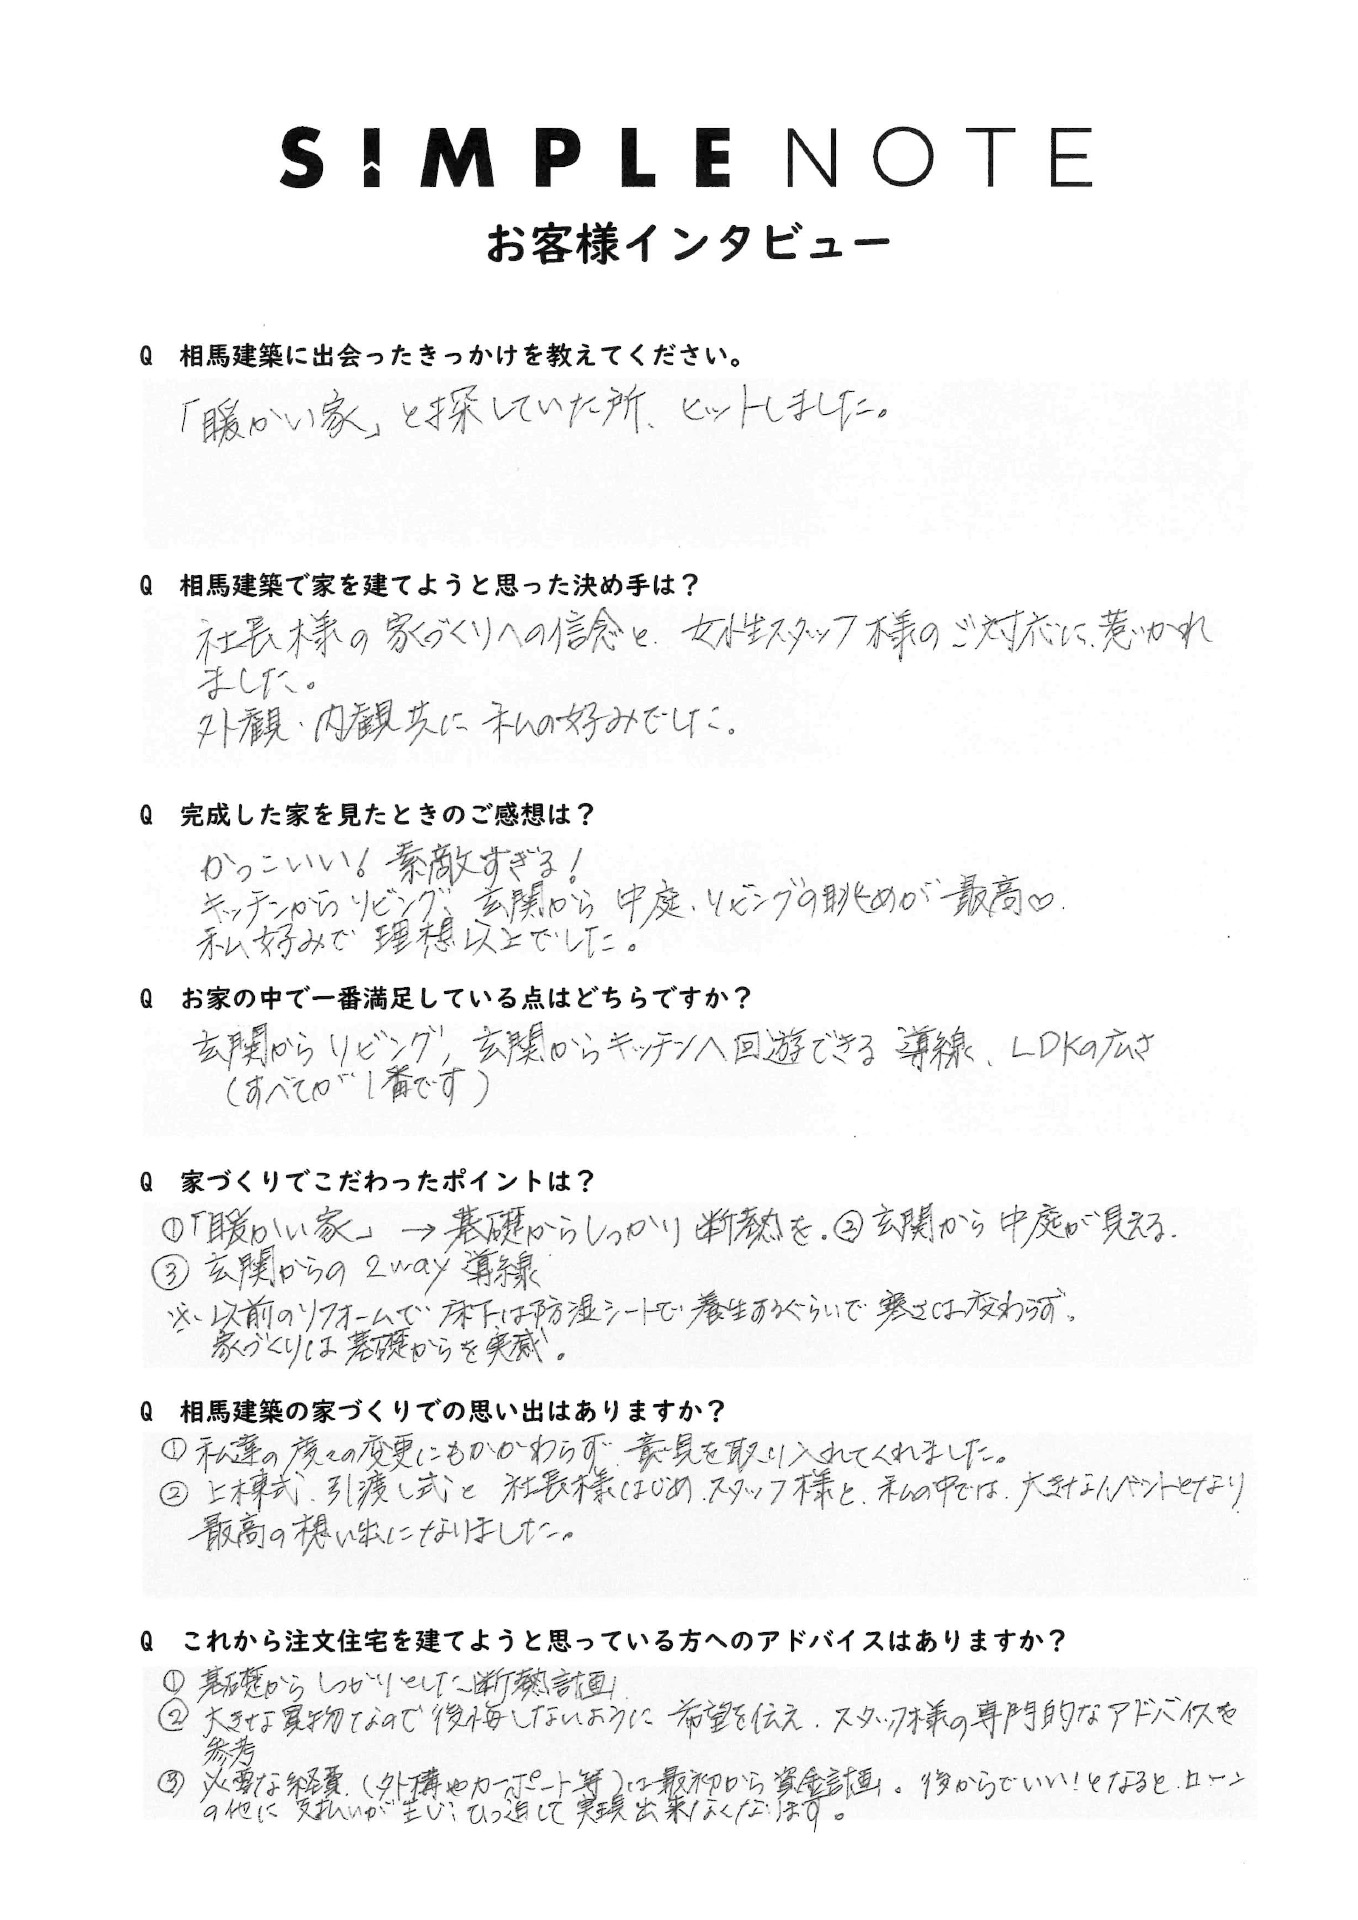 SIMPLE NOTE
お客様インタビュー
Q 相馬建築に出会ったきっかけを教えてください。
「暖かい家」と探していた所、ヒットしました。
Q 相馬建築で家を建てようと思った決め手は？
社長様の家づくりへの信念と、女性スタッフ様のご対応に、惹かれ
ました。
外観・内観共に私の好みでした。
Q 完成した家を見たときのご感想は？
かっこいい！素敵すぎる！
キッチンからリビング、玄関から中庭、リビングの眺めが最高♡.
私好みで理想以上でした。
Q お家の中で一番満足している点はどちらですか？
玄関からリビング、玄関からキッチンへ回遊できる導線、LDKの広さ
（すべてが1番です）
Q 家づくりでこだわったポイントは？
①「暖かい家」→基礎からしっかり断熱を.②玄関から中庭が見える.
③玄関からの2way導線
※、以前のリフォームで床下は防湿シートで養生するぐらいで寒さは変わらず。
家づくりは基礎からを実感。
Q 相馬建築の家づくりでの思い出はありますか？
①私達の度々の変更にもかかわらず意見を取り入れてくれました。
②上棟式、引渡し式と社長様はじめ、スタッフ様と、私の中では、大きなイベントとなり
最高の想い出になりました。
Q これから注文住宅を建てようと思っている方へのアドバイスはありますか？
①基礎からしっかりとした断熱計画
②大きな買物なので後悔しないように希望を伝え、スタッフ様の専門的なアドバイスを
参考
③必要な経費（外構やカーポート等）は最初から資金計画。後からでいい！となると、ローン
の他に支払いが生じ、ひっ迫して実現出来なくなります。